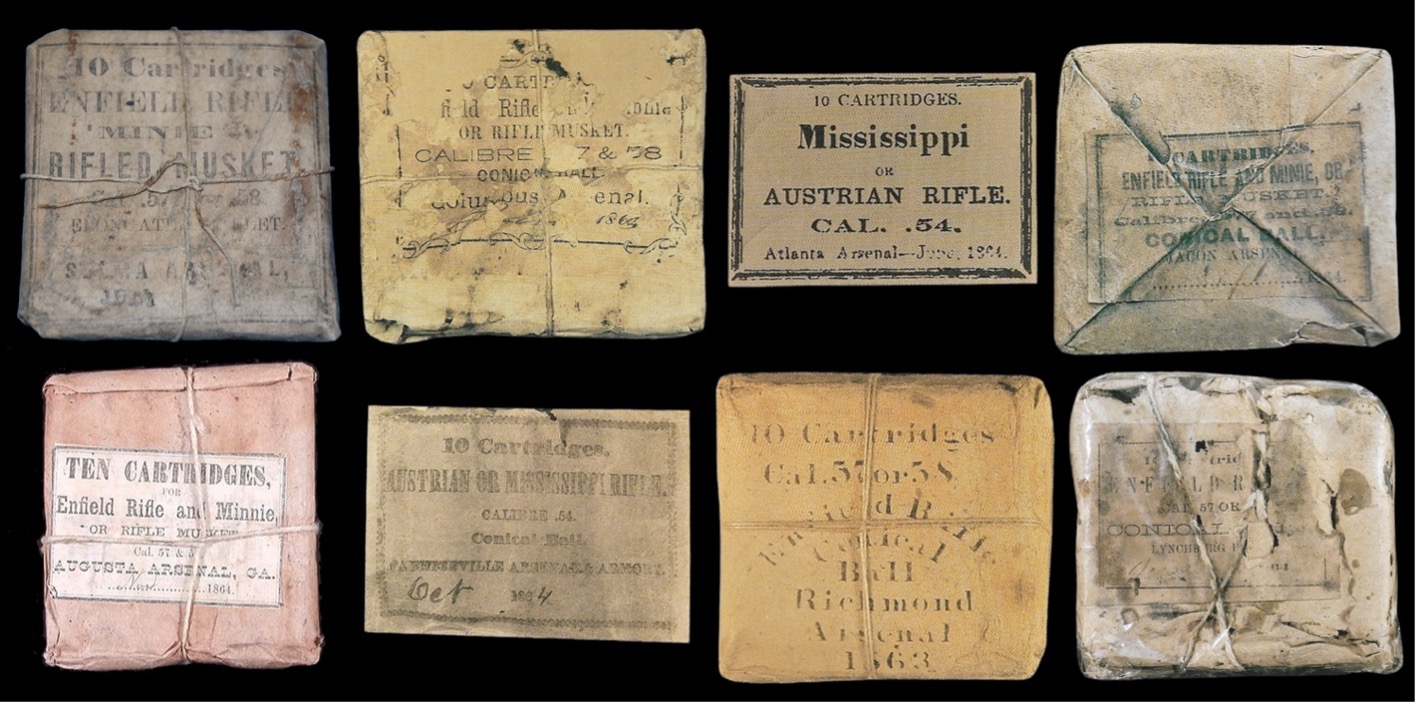 10 Cartridges
ENFIELD RIFLE
MINIE
RIFLED MUSKET
.57 or .58
SELMA ARSENAL,
CART
field Rifle
OR RIFLE MUSKET.
CALIBRE 7 & 58
CONICAL BALL
Columbus Arsenal.
10 CARTRIDGES.
Mississippi
OR
AUSTRIAN RIFLE.
CAL. .54.
Atlanta Arsenal—June, 1864.
CARTRIDGES,
ENFIELD RIFLE AND MINIE, OR
RIFLE MUSKET.
Calibre and 58.
CONICAL BALL.
MACON ARSENAL
TEN CARTRIDGES,
FOR
Enfield Rifle and Minnie,
OR RIFLE MUSKET
Cal. 57 & 5
AUGUSTA ARSENAL, GA.
1864.
10 Cartridges.
AUSTRIAN OR MISSISSIPPI RIFLE.
CALIBRE .54.
Conical Ball.
FAYETTEVILLE ARSENAL & ARMORY.
Oct 1864
10 Cartridges
Cal. 57 or 58
Enfield Rifle
Conical
Ball
Richmond
Arsenal
1863
ENFIELD R
CAL 57 OR
CONICAL
LYNCHBURG